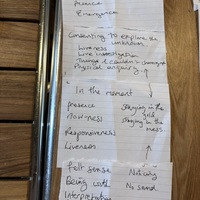 Presence
Emergence
Consenting to explore the
unknown
Liveness
Live investigation
Physical enquiry
In the moment
Presence
Now-ness
Responsiveness
Liveness
Staying in the
Staying in the
mess
Felt sense
Being with
Interpretation
Noticing
No send